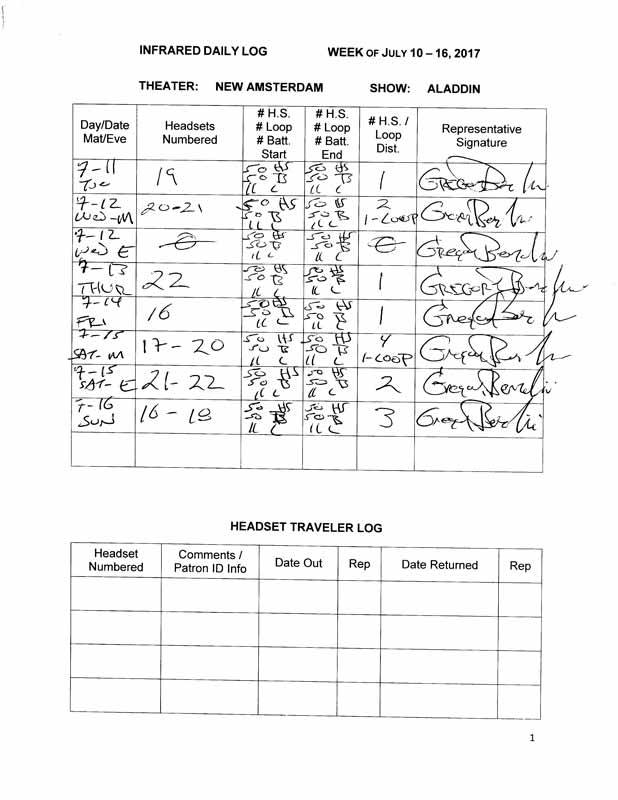 INFRARED DAILY LOG WEEK OF JULY 10 – 16, 2017
THEATER: NEW AMSTERDAM SHOW: ALADDIN
Day/Date Mat/Eve Headsets Numbered # H.S. # Loop # Batt. Start # H.S. # Loop # Batt. End # H.S. / Loop Dist. Representative Signature
7-11 TUE 19 50 HS 50 B 11 C 50 HS 50 B 11 C 1
7-12 WED-M 20-21 50 HS 50 B 11 C 50 HS 50 B 11 C 2 1-LOOP
7-12 WED E 50 HS 50 B 11 C 50 HS 50 B 11 C
7-13 THUR 22 50 HS 50 B 11 C 50 HS 50 B 11 C 1 GREGORY
7-14 FRI 16 50 HS 50 B 11 C 50 HS 50 B 11 C 1
7-15 SAT-M 17-20 50 HS 50 B 11 C 50 HS 50 B 11 C 4 1-LOOP
7-15 SAT-E 21-22 50 HS 50 B 11 C 50 HS 50 B 11 C 2
7-16 SUN 16-18 50 HS 50 B 11 C 50 HS 50 B 11 C 3
HEADSET TRAVELER LOG
Headset Numbered Comments / Patron ID Info Date Out Rep Date Returned Rep
1